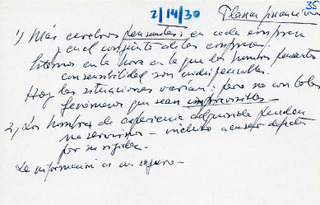 2/14/30
35
Planes financieros
1) Mas cerebros pensantes; en cada empresa
y en el conjunto de las empresas.
Estamos en la hora en la que los hombres pensantes
con sensibilidad son indispensables.
Hoy las situaciones varían; pero no son todos
fenómenos que sean imprevisibles
2) Los hombres de experiencia adquirida pueden
no servirnos — incluso a causa de
por su rigidez.
La información es un seguro —